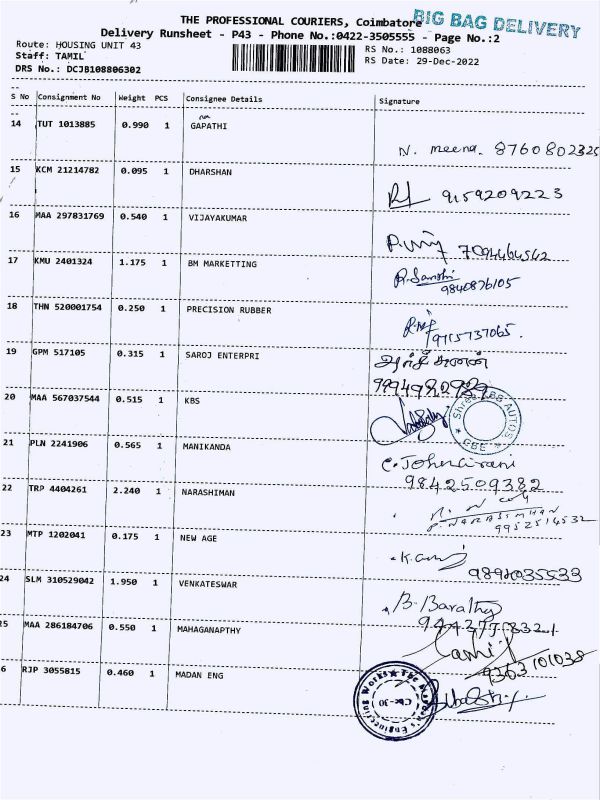 THE PROFESSIONAL COURIERS, Coimbatore
BIG BAG DELIVERY
Delivery Runsheet - P43 - Phone No.:0422-3505555 - Page No.:2
Route: HOUSING UNIT 43
RS No.: 1088063
Staff: TAMIL
RS Date: 29-Dec-2022
DRS No.: DCJB108806302
S No Consignment No Weight PCS Consignee Details Signature
14 TUT 1013885 0.990 1 GAPATHI
na
N. meena. 8760802325
15 KCM 21214782 0.095 1 DHARSHAN
9159209223
16 MAA 297831769 0.540 1 VIJAYAKUMAR
7094464542
17 KMU 2401324 1.175 1 BM MARKETTING
9840876105
18 THN 520001754 0.250 1 PRECISION RUBBER
9715737065.
19 GPM 517105 0.315 1 SAROJ ENTERPRI
20 MAA 567037544 0.515 1 KBS
AUTOS
CBE
21 PLN 2241906 0.565 1 MANIKANDA
9842509382
22 TRP 4404261 2.240 1 NARASHIMAN
P. NARASIMHAN
9952514532
23 MTP 1202041 0.175 1 NEW AGE
24 SLM 310529042 1.950 1 VENKATESWAR
B. Barathy
25 MAA 286184706 0.550 1 MAHAGANAPTHY
9363101038
6 RJP 3055815 0.460 1 MADAN ENG
Engineering Works